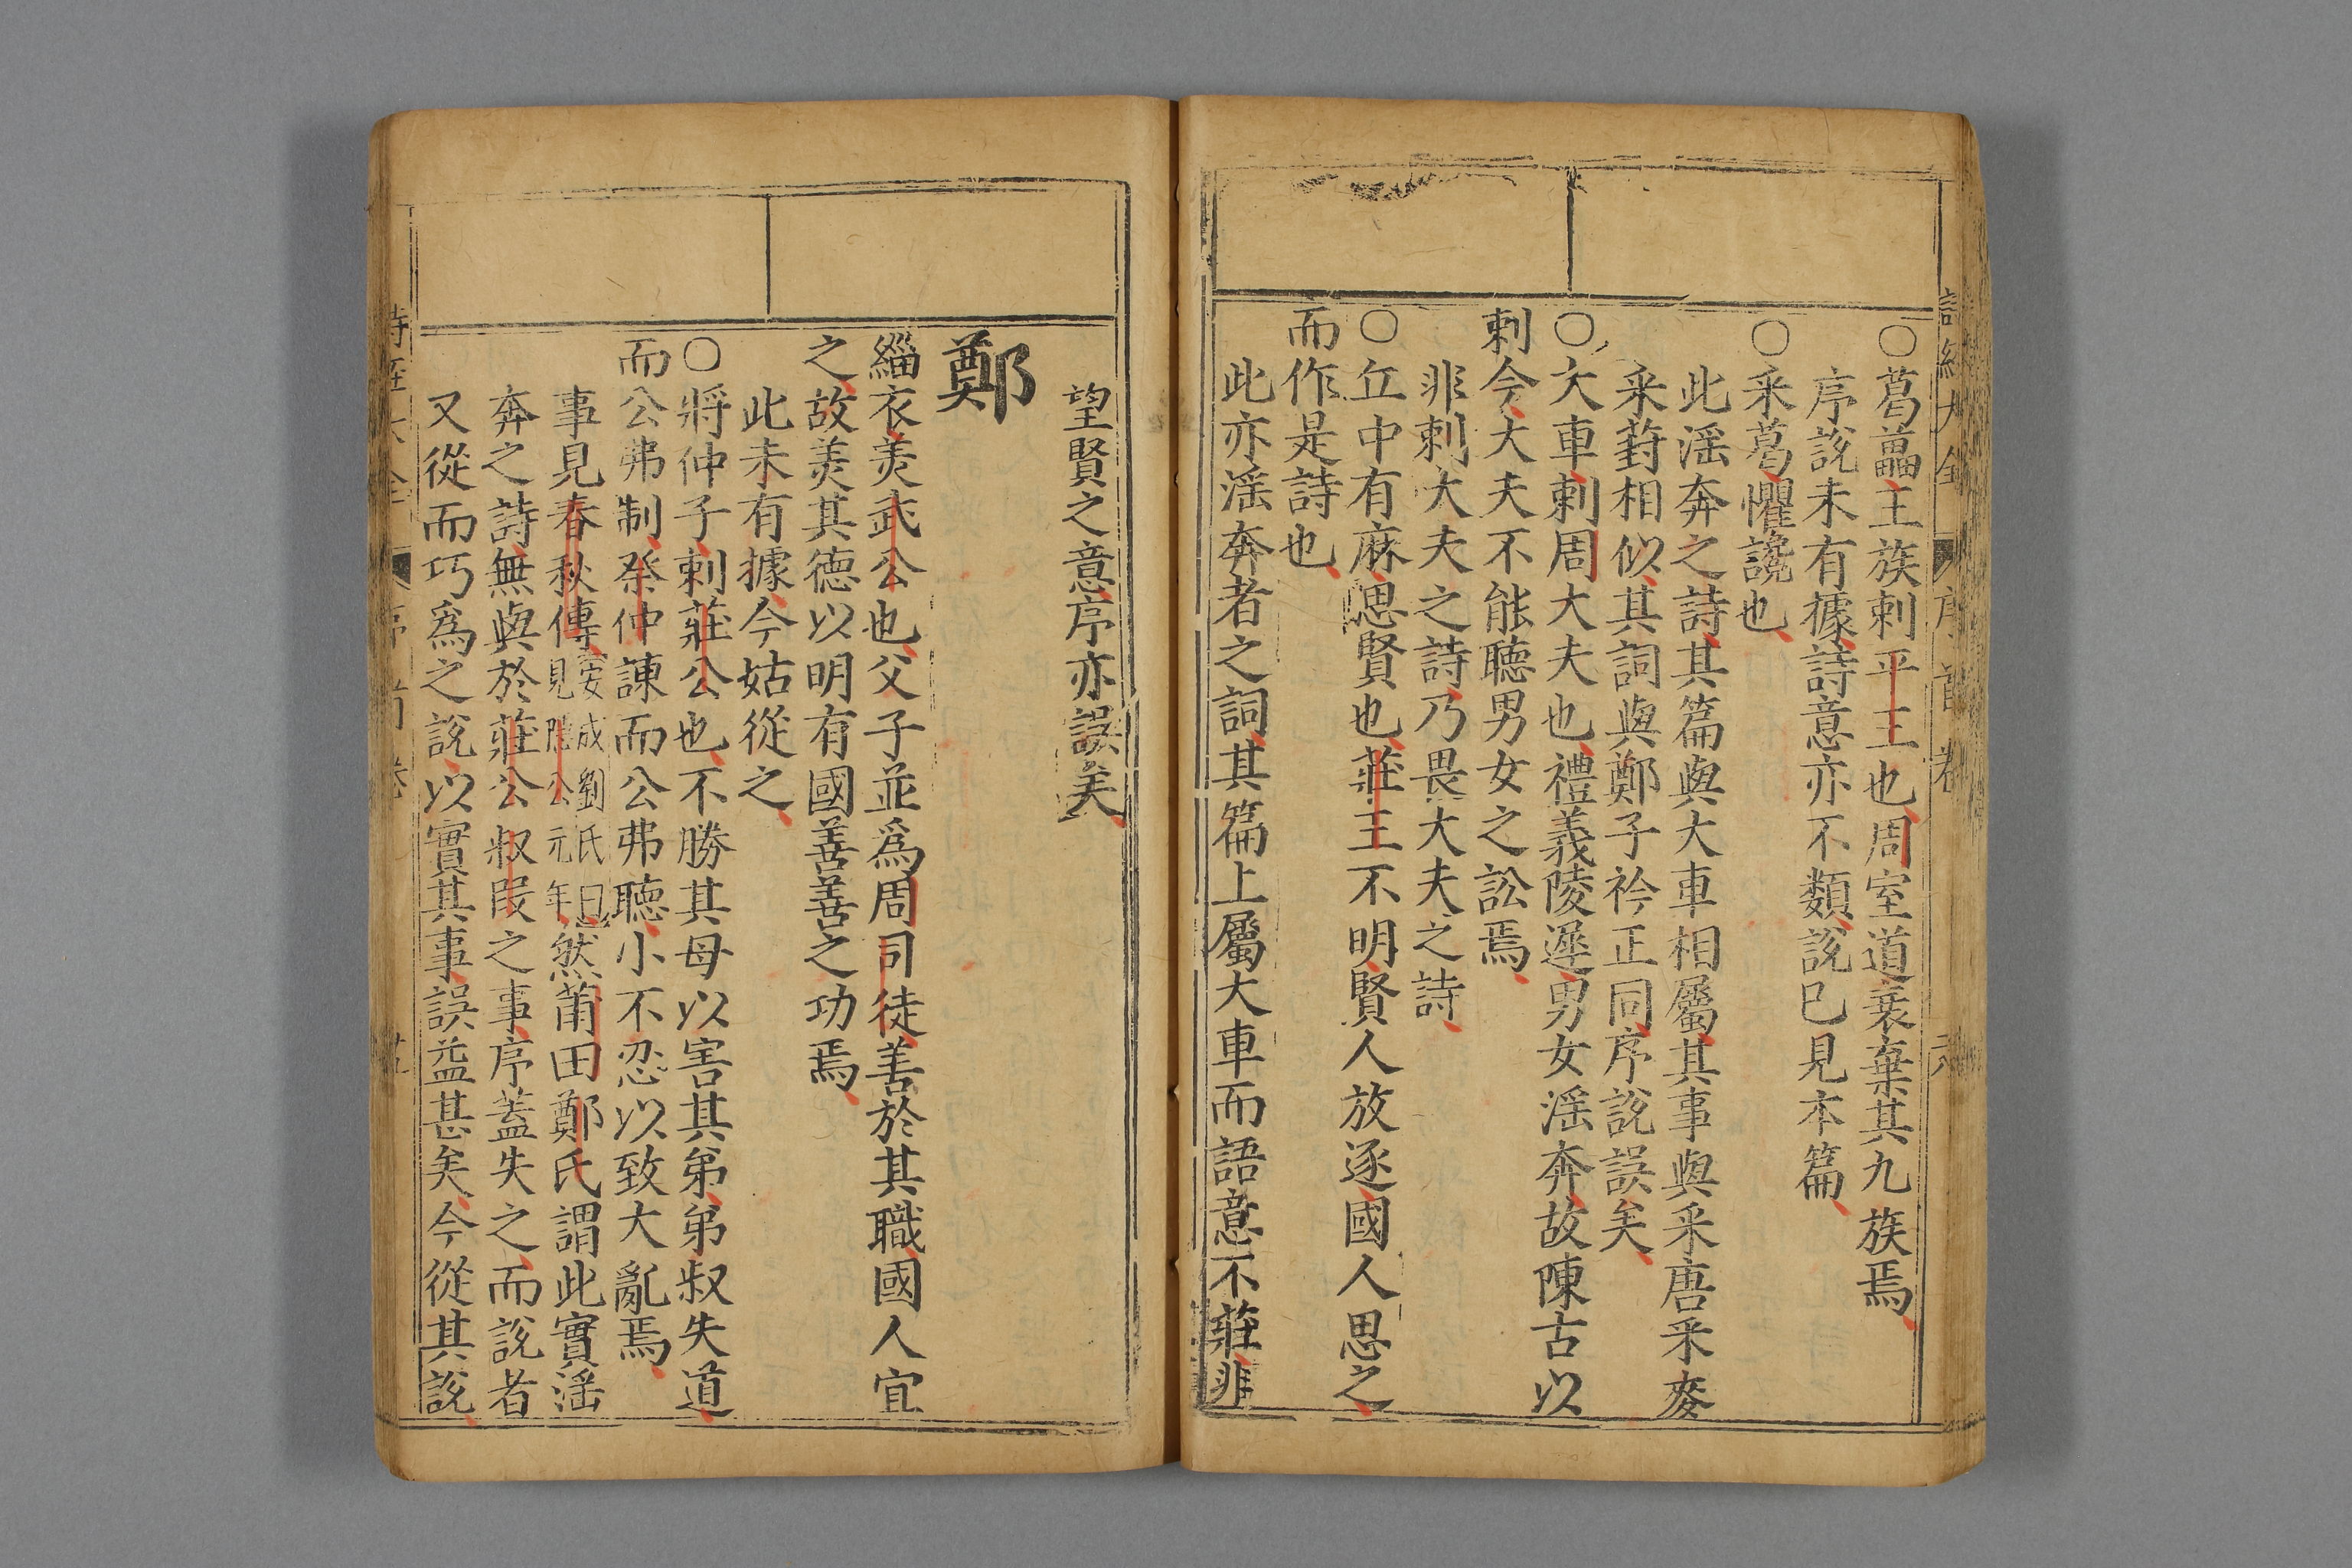 ○葛藟王族刺平王也周室道衰棄其九族焉
序說未有據詩意亦不類說已見本篇
○采葛懼讒也
此滛奔之詩其篇與大車相屬其事與采唐采麥
采葑相似其詞與鄭子衿正同序說誤矣
○大車刺周大夫也禮義陵遲男女滛奔故陳古以
刺今大夫不能聽男女之訟焉
非刺大夫之詩乃畏大夫之詩
○丘中有麻思賢也莊王不明賢人放逐國人思之
而作是詩也
此亦滛奔者之詞其篇上屬大車而語意不莊非
望賢之意序亦誤矣
鄭
緇衣美武公也父子並爲周司徒善於其職國人宜
之故美其德以明有國善善之功焉
此未有據今姑從之
○將仲子刺莊公也不勝其母以害其弟弟叔失道
而公弗制祭仲諫而公弗聽小不忍以致大亂焉
事見春秋傳安成劉氏曰見隱公元年然莆田鄭氏謂此實滛
奔之詩無與於莊公叔段之事序蓋失之而說者
又從而巧爲之說以實其事誤益甚矣今從其說